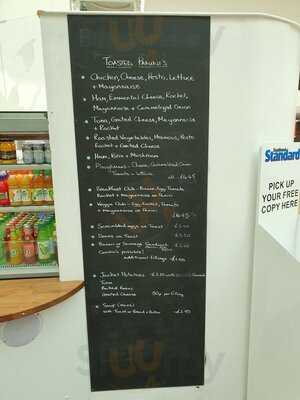 Toasted Panini's
Chicken, Cheese, Pesto, Lettuce
+ Mayonnaise
Ham, Emmental Cheese, Rocket,
Mayonnaise + Caramelised Onion
Tuna, Grated Cheese, Mayonnaise
+ Rocket
Roasted Vegetables, Houmous, Pesto
Rocket + Grated Cheese
Ham, Brie + Mushroom
Ploughmans - Cheese, Caramelised Onion
Tomato + Lettuce
all £6.45
Breakfast Club - Bacon, Egg, Tomato
Rocket + Mayonnaise on Panini
Veggie Club - Egg, Rocket, Tomato
+ Mayonnaise on Panini
£6.45
Scrambled eggs on Toast
Beans on Toast
Bacon or Sausage Sandwich
additional fillings
Jacket Potatoes
Tuna
Baked Beans
Grated Cheese
per filling
Soup
with Toast or Bread + Butter
Standard
PICK UP
YOUR FREE
COPY HERE